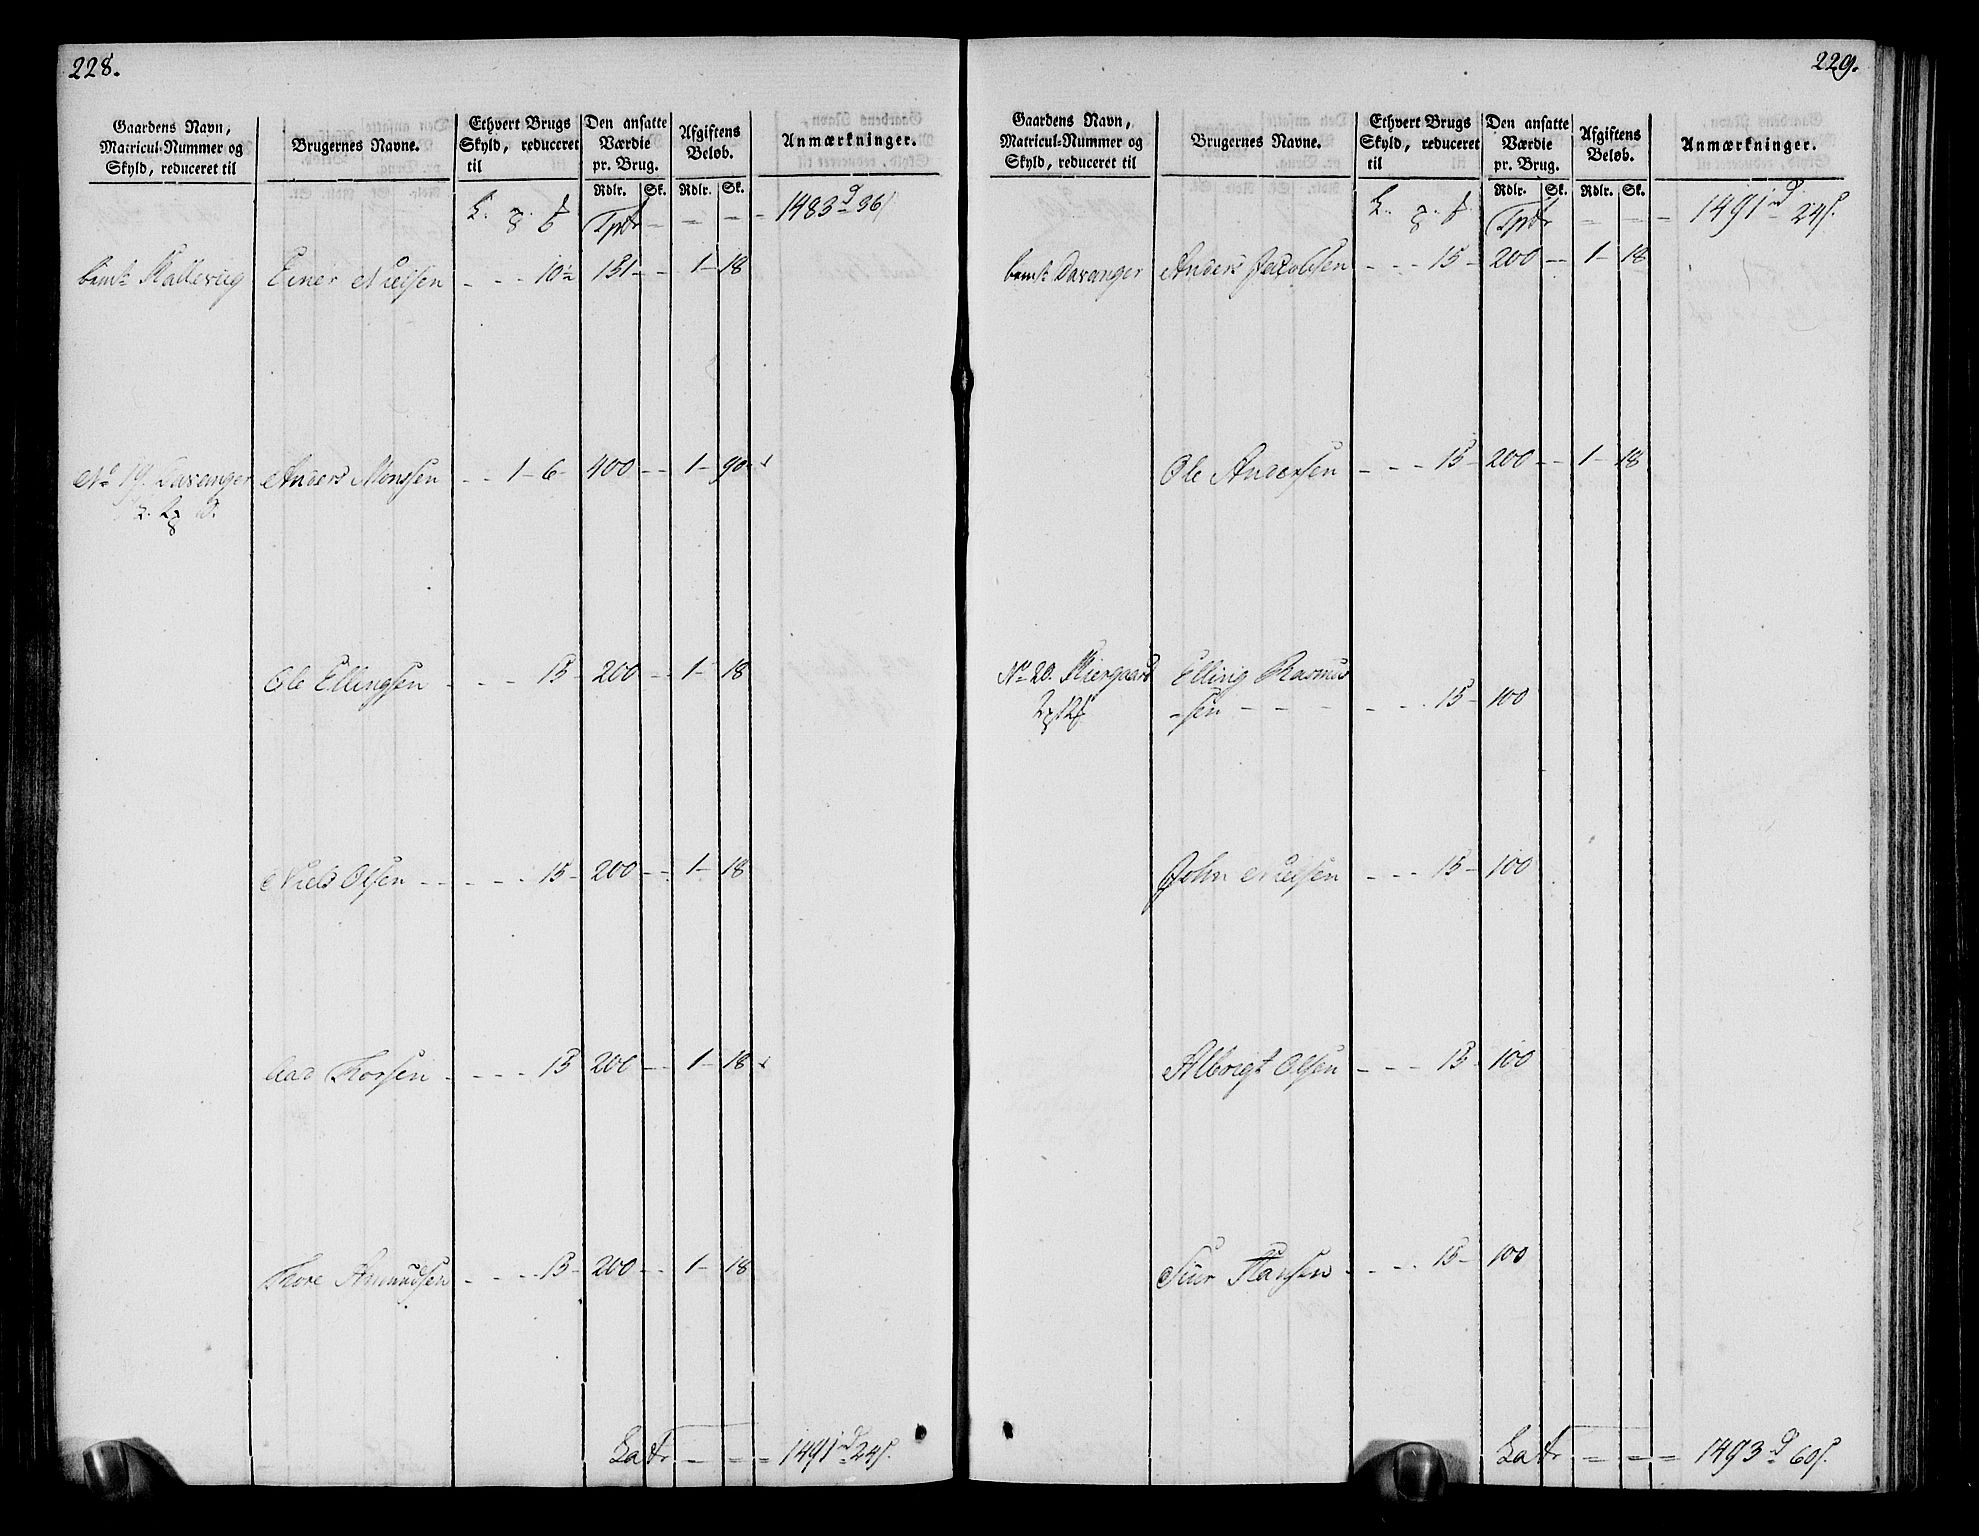 228.
Gaardens Navn,
Matricul-Nummer og
Skyld, reduceret til
Brugernes Navne.
Ethvert Brugs
Skyld, reduceret
til
Den ansatte
Værdie
pr. Brug.
Rdlr. Sk.
Afgiftens
Beløb.
Rdlr. Sk.
Anmærkninger.
Tpt - - - - 1483 d 36 s
Einer Nielsen - - - 10½ 131 - - 1 - 18
No 19. Davanger Anders Monssen - - 1 - 6 - 400 - - 1 - 90
Ole Ellingsen - - - 15 - 200 - - 1 - 18
Niels Olsen - - - - - 15 - 200 - - 1 - 18
Aad Thorsen - - - - 15 200 - - 1 - 18
Thore Amundsen - - - - 15 - 200 - - 1 - 18
Latr - - - 1491 d 24 s.
229.
Gaardens Navn,
Matricul-Nummer og
Skyld, reduceret til
Brugernes Navne.
Ethvert Brugs
Skyld, reduceret
til
Den ansatte
Værdie
pr. Brug.
Rdlr. Sk.
Afgiftens
Beløb.
Rdlr. Sk.
Anmærkninger.
Tpt - - - 1491 d 24 s.
bemt Davanger Anders Jacobsen - - - 15 - 200 - - 1 - 18
Ole Andersen - - - 15 - 200 - - 1 - 18
No 20. Elling Rasmus
-sen - - - - - - 15 - 100
John Nielsen - - - 15 - 100
Albrigt Olsen - - - 15 - 100
Siur Hansen - - - 15 - 100
Latr - - - 1493 d 60 s.